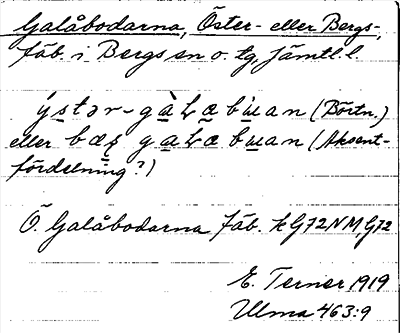 Galåbodarna, Öster- eller Bergs-,
fäb. i Bergs sn o. tg, Jämtl. l.
ýstər-gàLæbɯan (Börtn.)
eller bæʂ gaLæbɯan (Aksent-
fördelning?)
Ö. Galåbodarna fäb. k G72NM, G72
E. Terner 1919
Ulma 463:9